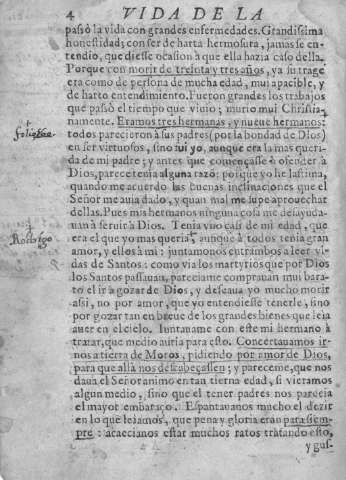 4 VIDA DE LA
passò la vida con grandes enfermedades. Grandissima
honestidad; con ser de harta hermosura, jamas se en-
tendio, que diesse ocasion à que ella hazia caso della.
Porque con morir de treinta y tres años, ya su trage
era como de persona de mucha edad, mui apacible, y
de harto entendimiento. Fueron grandes los trabajos
que passò el tiempo que viuio; murio mui Christia-
namente. Eramos tres hermanas, y nueue hermanos:
todos parecieron à sus padres (por la bondad de Dios)
en ser virtuosos, sino fui yo, aunque era la mas queri-
da de mi padre; y antes que començasse à ofender à
Dios, parece tenia alguna razo: porque yo he lastima,
quando me acuerdo las buenas inclinaciones que el
Señor me auia dado, y quan mal me supe aprouechar
dellas. Pues mis hermanos ninguna cosa me desayuda-
uan à seruir à Dios. Tenia vno casi de mi edad, que
Rodrigo
era el que yo mas queria, aunque à todos tenia gran
amor, y ellos à mi: juntamonos entrambos à leer vi-
das de Santos: como via los martyrios que por Dios
los Santos passauan, pareciame comprauan mui bara-
to el ir à gozar de Dios, y deseaua yo mucho morir
assi, no por amor, que yo entendiesse tenerle, sino
por gozar tan en breue de los grandes bienes que leia
auer en el cielo. Iuntauame con este mi hermano à
tratar, que medio auria para esto. Concertauamos ir-
nos a tierra de Moros, pidiendo por amor de Dios,
para que allà nos descabeçassen; y pareceme, que nos
daua el Señor animo en tan tierna edad, si vieramos
algun medio, sino que el tener padres nos parecia
el mayor embaraço. Espantauanos mucho el dezir
en lo que leiamos, que pena y gloria eran para siem-
pre: acaecianos estar muchos ratos tratando esto,
y gus-